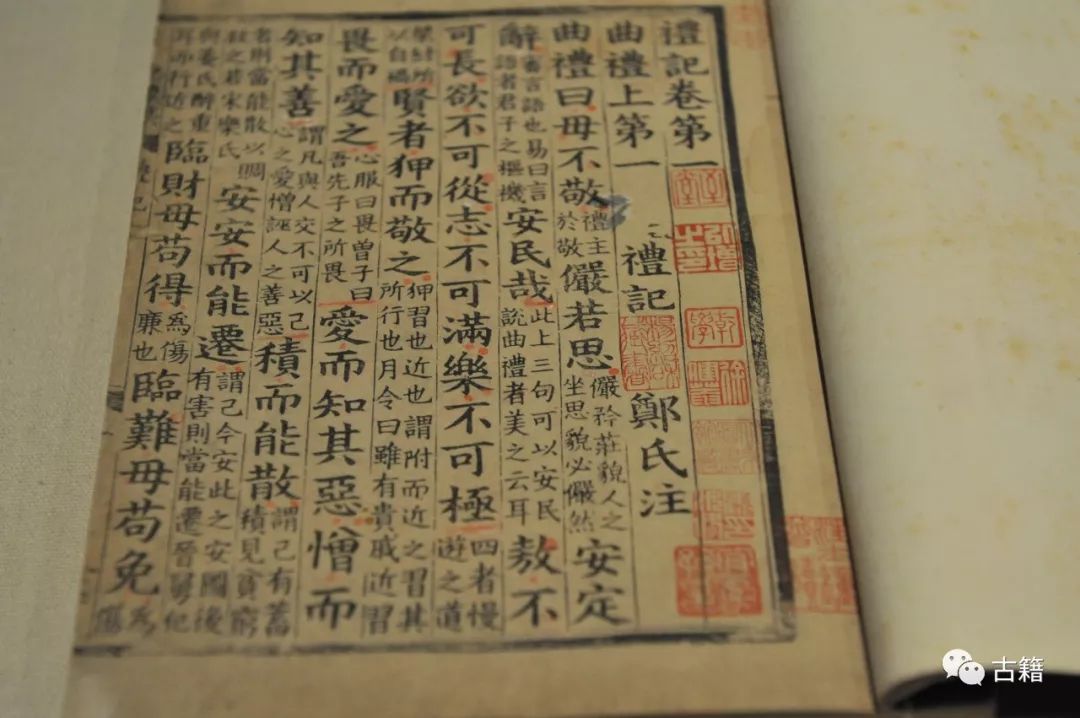 禮記卷第一
曲禮上第一 禮記 鄭氏注
曲禮曰毋不敬禮主於敬儼若思儼矜莊貌人之坐思貌必儼然安定
辭審言語也易曰言語者君子之樞機安民哉此上三句可以安民說曲禮者美之云耳敖不
可長欲不可從志不可滿樂不可極四者慢遊之道
桀紂所以自禍賢者狎而敬之狎習也近也謂附而近之習其所行也月令曰雖有貴戚近習
畏而愛之心服曰畏曾子曰吾先子之所畏愛而知其惡憎而
知其善謂凡與人交不可以己心之愛憎誣人之善惡積而能散謂己有蓄積見貧窮
者則當能散以賙救之若宋樂氏安安而能遷謂己今安此之安圖後有害則當能遷晉舅犯
與姜氏醉重耳而行近之臨財毋苟得為傷廉也臨難毋苟免為傷
古籍